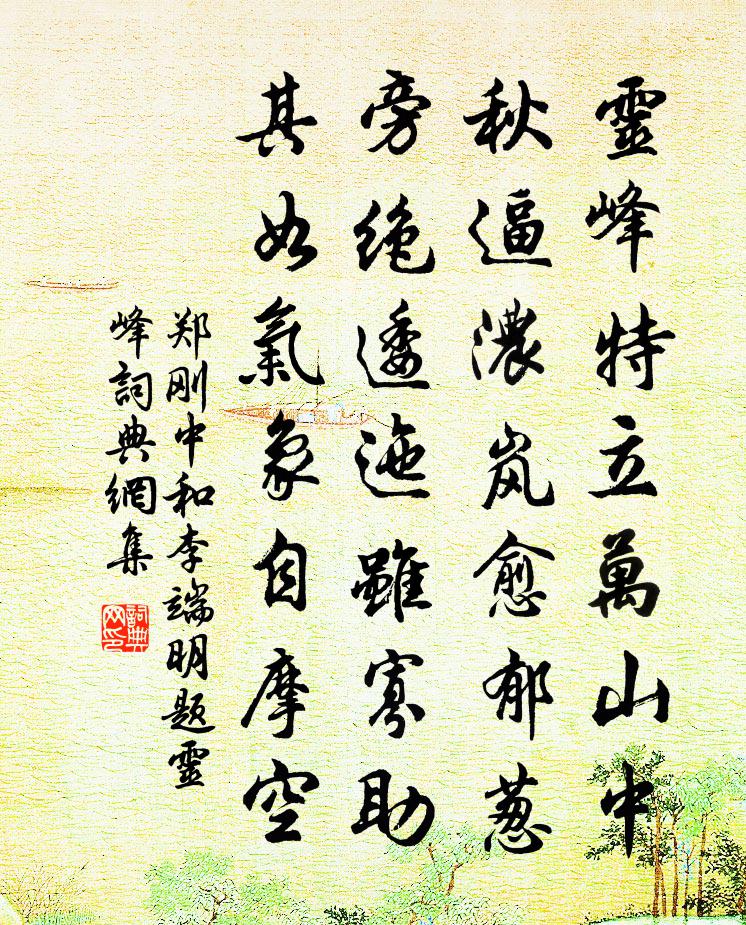 靈峰特立萬山中
秋逼濃岚愈郁葱
旁絶逶迤雖寡助
其如氣象自摩空
郑刚中和李端明题靈
峰詞典網集
詞典
网印